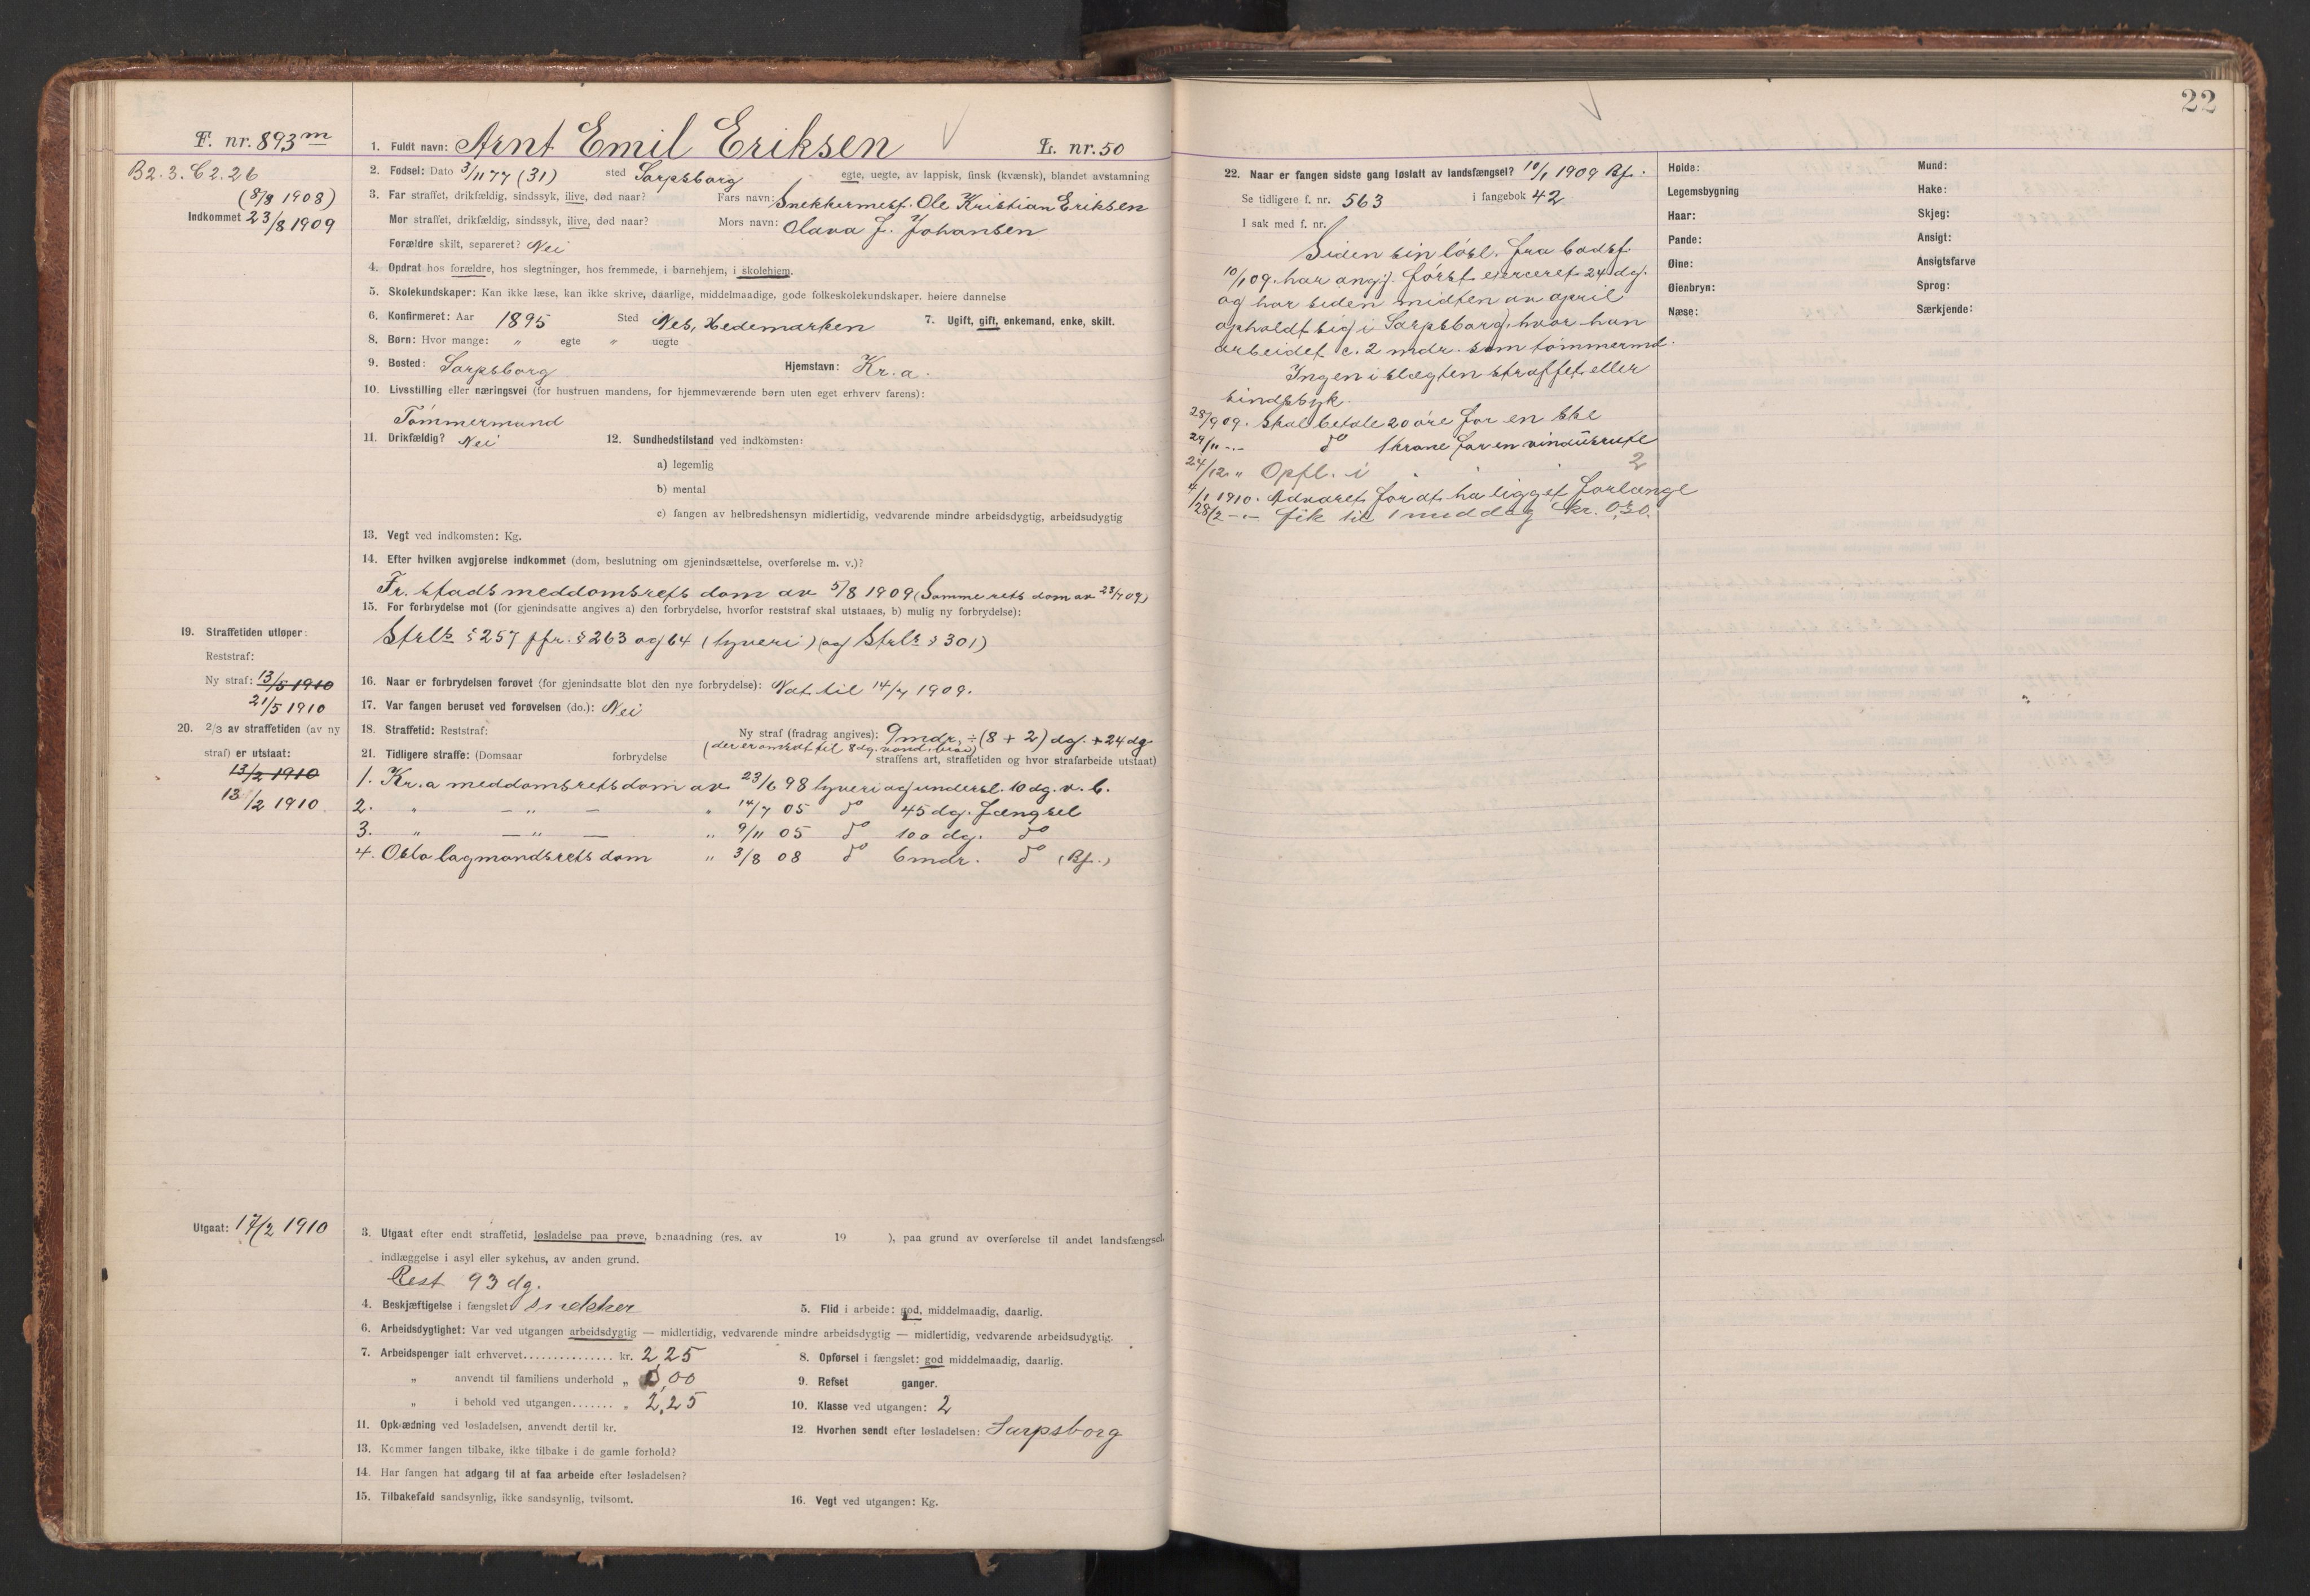 F. nr. 893 m
B2. 3. C2. 26
(8/8 1908)
Indkommet 23/8 1909
1. Fuldt navn: Arnt Emil Eriksen L. nr. 50
2. Fødsel: Dato 3/11 77 (31) sted Sarpsborg egte, uegte, av lappisk, finsk (kvænsk), blandet avstamning
3. Far straffet, drikfældig, sindssyk, ilive, død naar? Fars navn: Snekkermest. Ole Kristian Eriksen
Mor straffet, drikfældig, sindssyk, ilive, død naar? Mors navn: Olava J. Johansen
Forældre skilt, separeret? Nei
4. Opdrat hos forældre, hos slegtninger, hos fremmede, i barnehjem, i skolehjem.
5. Skolekundskaper: Kan ikke læse, kan ikke skrive, daarlige, middelmaadige, gode folkeskolekundskaper, høiere dannelse
6. Konfirmeret: Aar 1895 Sted Nes, Hedemarken 7. Ugift, gift, enkemand, enke, skilt.
8. Børn: Hvor mange: " egte " uegte
9. Bosted: Sarpsborg Hjemstavn: Kr.a.
10. Livsstilling eller næringsvei (for hustruen mandens, for hjemmeværende børn uten eget erhverv farens):
Tømmermand
11. Drikfældig? Nei 12. Sundhedstilstand ved indkomsten:
a) legemlig
b) mental
c) fangen av helbredshensyn midlertidig, vedvarende mindre arbeidsdygtig, arbeidsudygtig
13. Vegt ved indkomsten: Kg.
14. Efter hvilken avgjørelse indkommet (dom, beslutning om gjenindsættelse, overførelse m. v.)?
Fr. stads meddomsrets dom av 5/8 1909 (Samme rets dom av 23/7 09)
15. For forbrydelse mot (for gjenindsatte angives a) den forbrydelse, hvorfor reststraf skal utstaaes, b) mulig ny forbrydelse):
Strlv § 257 jfr. § 263 og 64 (tyveri) (og Strlv § 301)
16. Naar er forbrydelsen forøvet (for gjenindsatte blot den nye forbrydelse): Nat til 14/7 1909.
17. Var fangen beruset ved forøvelsen (do.): Nei
18. Straffetid: Reststraf: Ny straf (fradrag angives): 9 mdr. ÷ (8 + 2) dg. + 24 dg.
(der er omsat til 8 dg. vand, brød)
19. Straffetiden utløper:
Reststraf:
Ny straf: 13/5 1910
21/5 1910
20. 2/3 av straffetiden (av ny
straf) er utstaat:
13/2 1910
13/2 1910
21. Tidligere straffe: (Domsaar forbrydelse straffens art, straffetiden og hvor strafarbeide utstaat)
1. Kr.a meddomsrets dom av 23/6 98 tyveri og undersl. 10 dg. v. b.
2. " — " — " 14/7 05 do 45 dg. fængsel
3. " — " — " 9/11 05 do 100 dg. do
4. Oslo lagmandsrets dom " 3/8 08 do 6 mdr. do (Bf.)
Utgaat: 17/2 1910
3. Utgaat efter endt straffetid, løsladelse paa prøve, benaadning (res. av 19 ), paa grund av overførelse til andet landsfængsel,
indlæggelse i asyl eller sykehus, av anden grund.
Rest 93 dg.
4. Beskjæftigelse i fængslet snekker 5. Flid i arbeide: god, middelmaadig, daarlig.
6. Arbeidsdygtighet: Var ved utgangen arbeidsdygtig — midlertidig, vedvarende mindre arbeidsdygtig — midlertidig, vedvarende arbeidsudygtig.
7. Arbeidspenger ialt erhvervet............... kr. 2,25 8. Opførsel i fængslet: god middelmaadig, daarlig.
" anvendt til familiens underhold " 0,00 9. Refset ganger.
" i behold ved utgangen....... " 2,25 10. Klasse ved utgangen: 2
11. Opklædning ved løsladelsen, anvendt dertil kr. 12. Hvorhen sendt efter løsladelsen: Sarpsborg
13. Kommer fangen tilbake, ikke tilbake i de gamle forhold?
14. Har fangen hat adgang til at faa arbeide efter løsladelsen?
15. Tilbakefald sandsynlig, ikke sandsynlig, tvilsomt. 16. Vegt ved utgangen: Kg.
22
22. Naar er fangen sidste gang løslatt av landsfængsel? 10/1 1909 Bf.
Se tidligere f. nr. 563 i fangebok 42
I sak med f. nr.
Siden sin løsl. fra bodsf.
10/1 09. har angj. først exerceret 24 dg.
og har siden midten av april
opholdt sig i Sarpsborg, hvor han
arbeidet c. 2 mdr. som tømmermd.
Ingen i slægten straffet eller
sindssyk.
28/9 09. Skal betale 20 øre for en ske
29/11 -.- do 1 krone for en vindusrute
24/12 " Opfl. i 2
4/1 1910. Advaret for at ha ligget forlænge
28/2 -.- fik til 1 middag kr. 0,30.
Høide:
Legemsbygning
Haar:
Pande:
Øine:
Øienbryn:
Næse:
Mund:
Hake:
Skjeg:
Ansigt:
Ansigtsfarve
Sprog:
Særkjende: